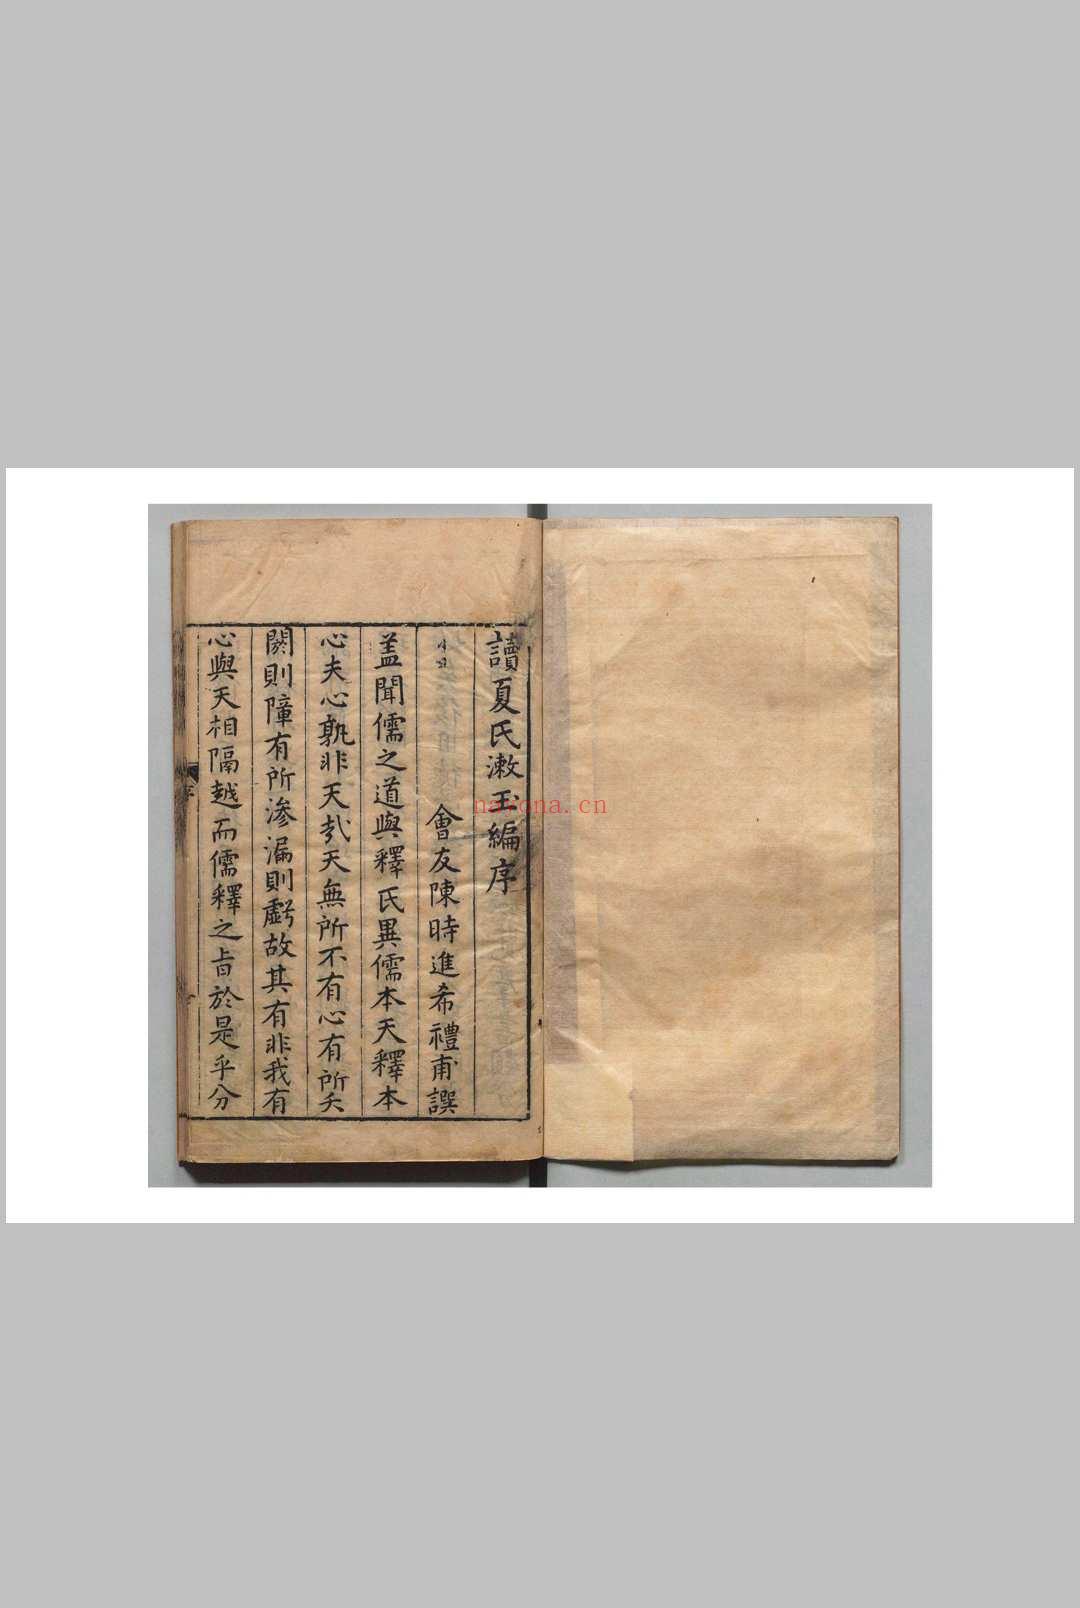 讀夏氏漱玉編序
會友陳時進希禮甫譔
盖聞儒之道與釋氏異儒本天釋本
心夫心孰非天㢤天無所不有心有所夭
闕則障有所滲漏則虧故其有非我有
心與天相隔越而儒釋之旨於是乎分
序
navona.cn